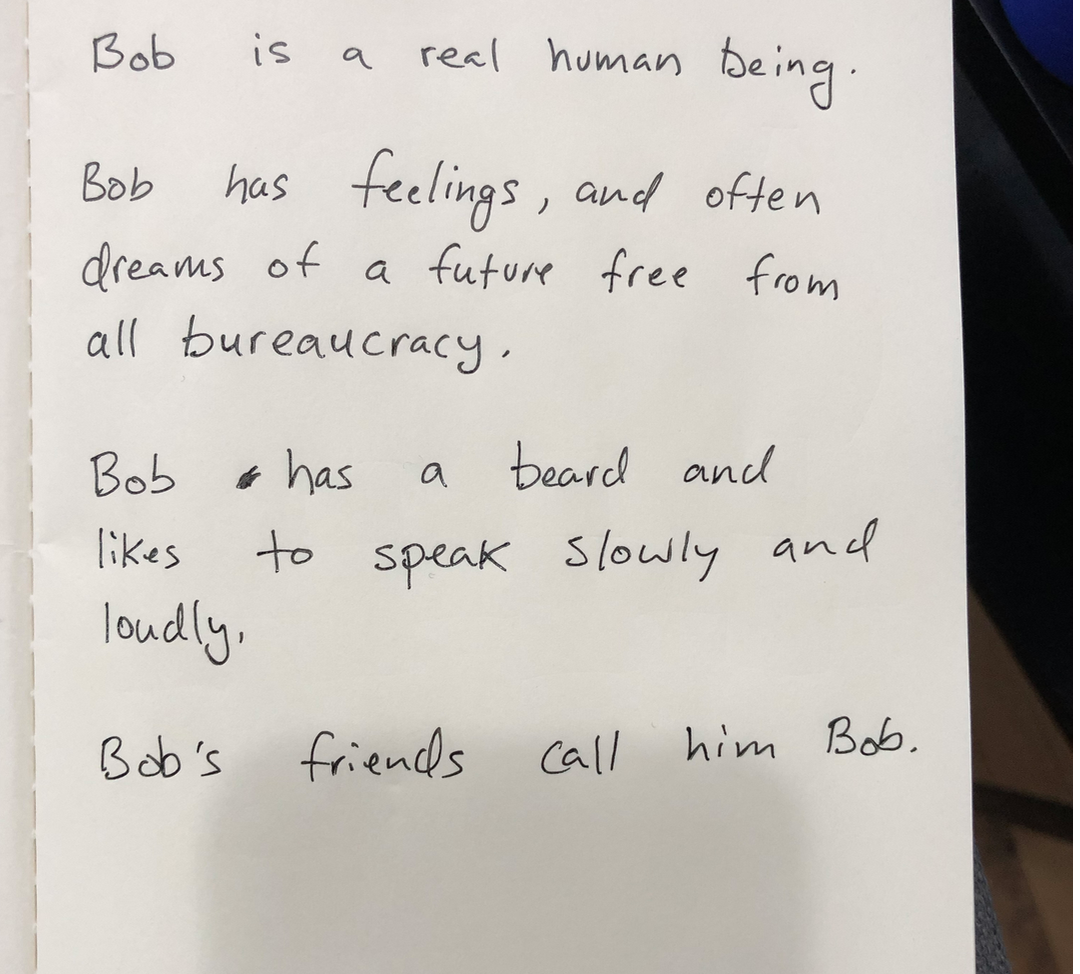 Bob is a real human being.
Bob has feelings, and often
dreams of a future free from
all bureaucracy.
Bob has a beard and
likes to speak slowly and
loudly.
Bob's friends call him Bob.